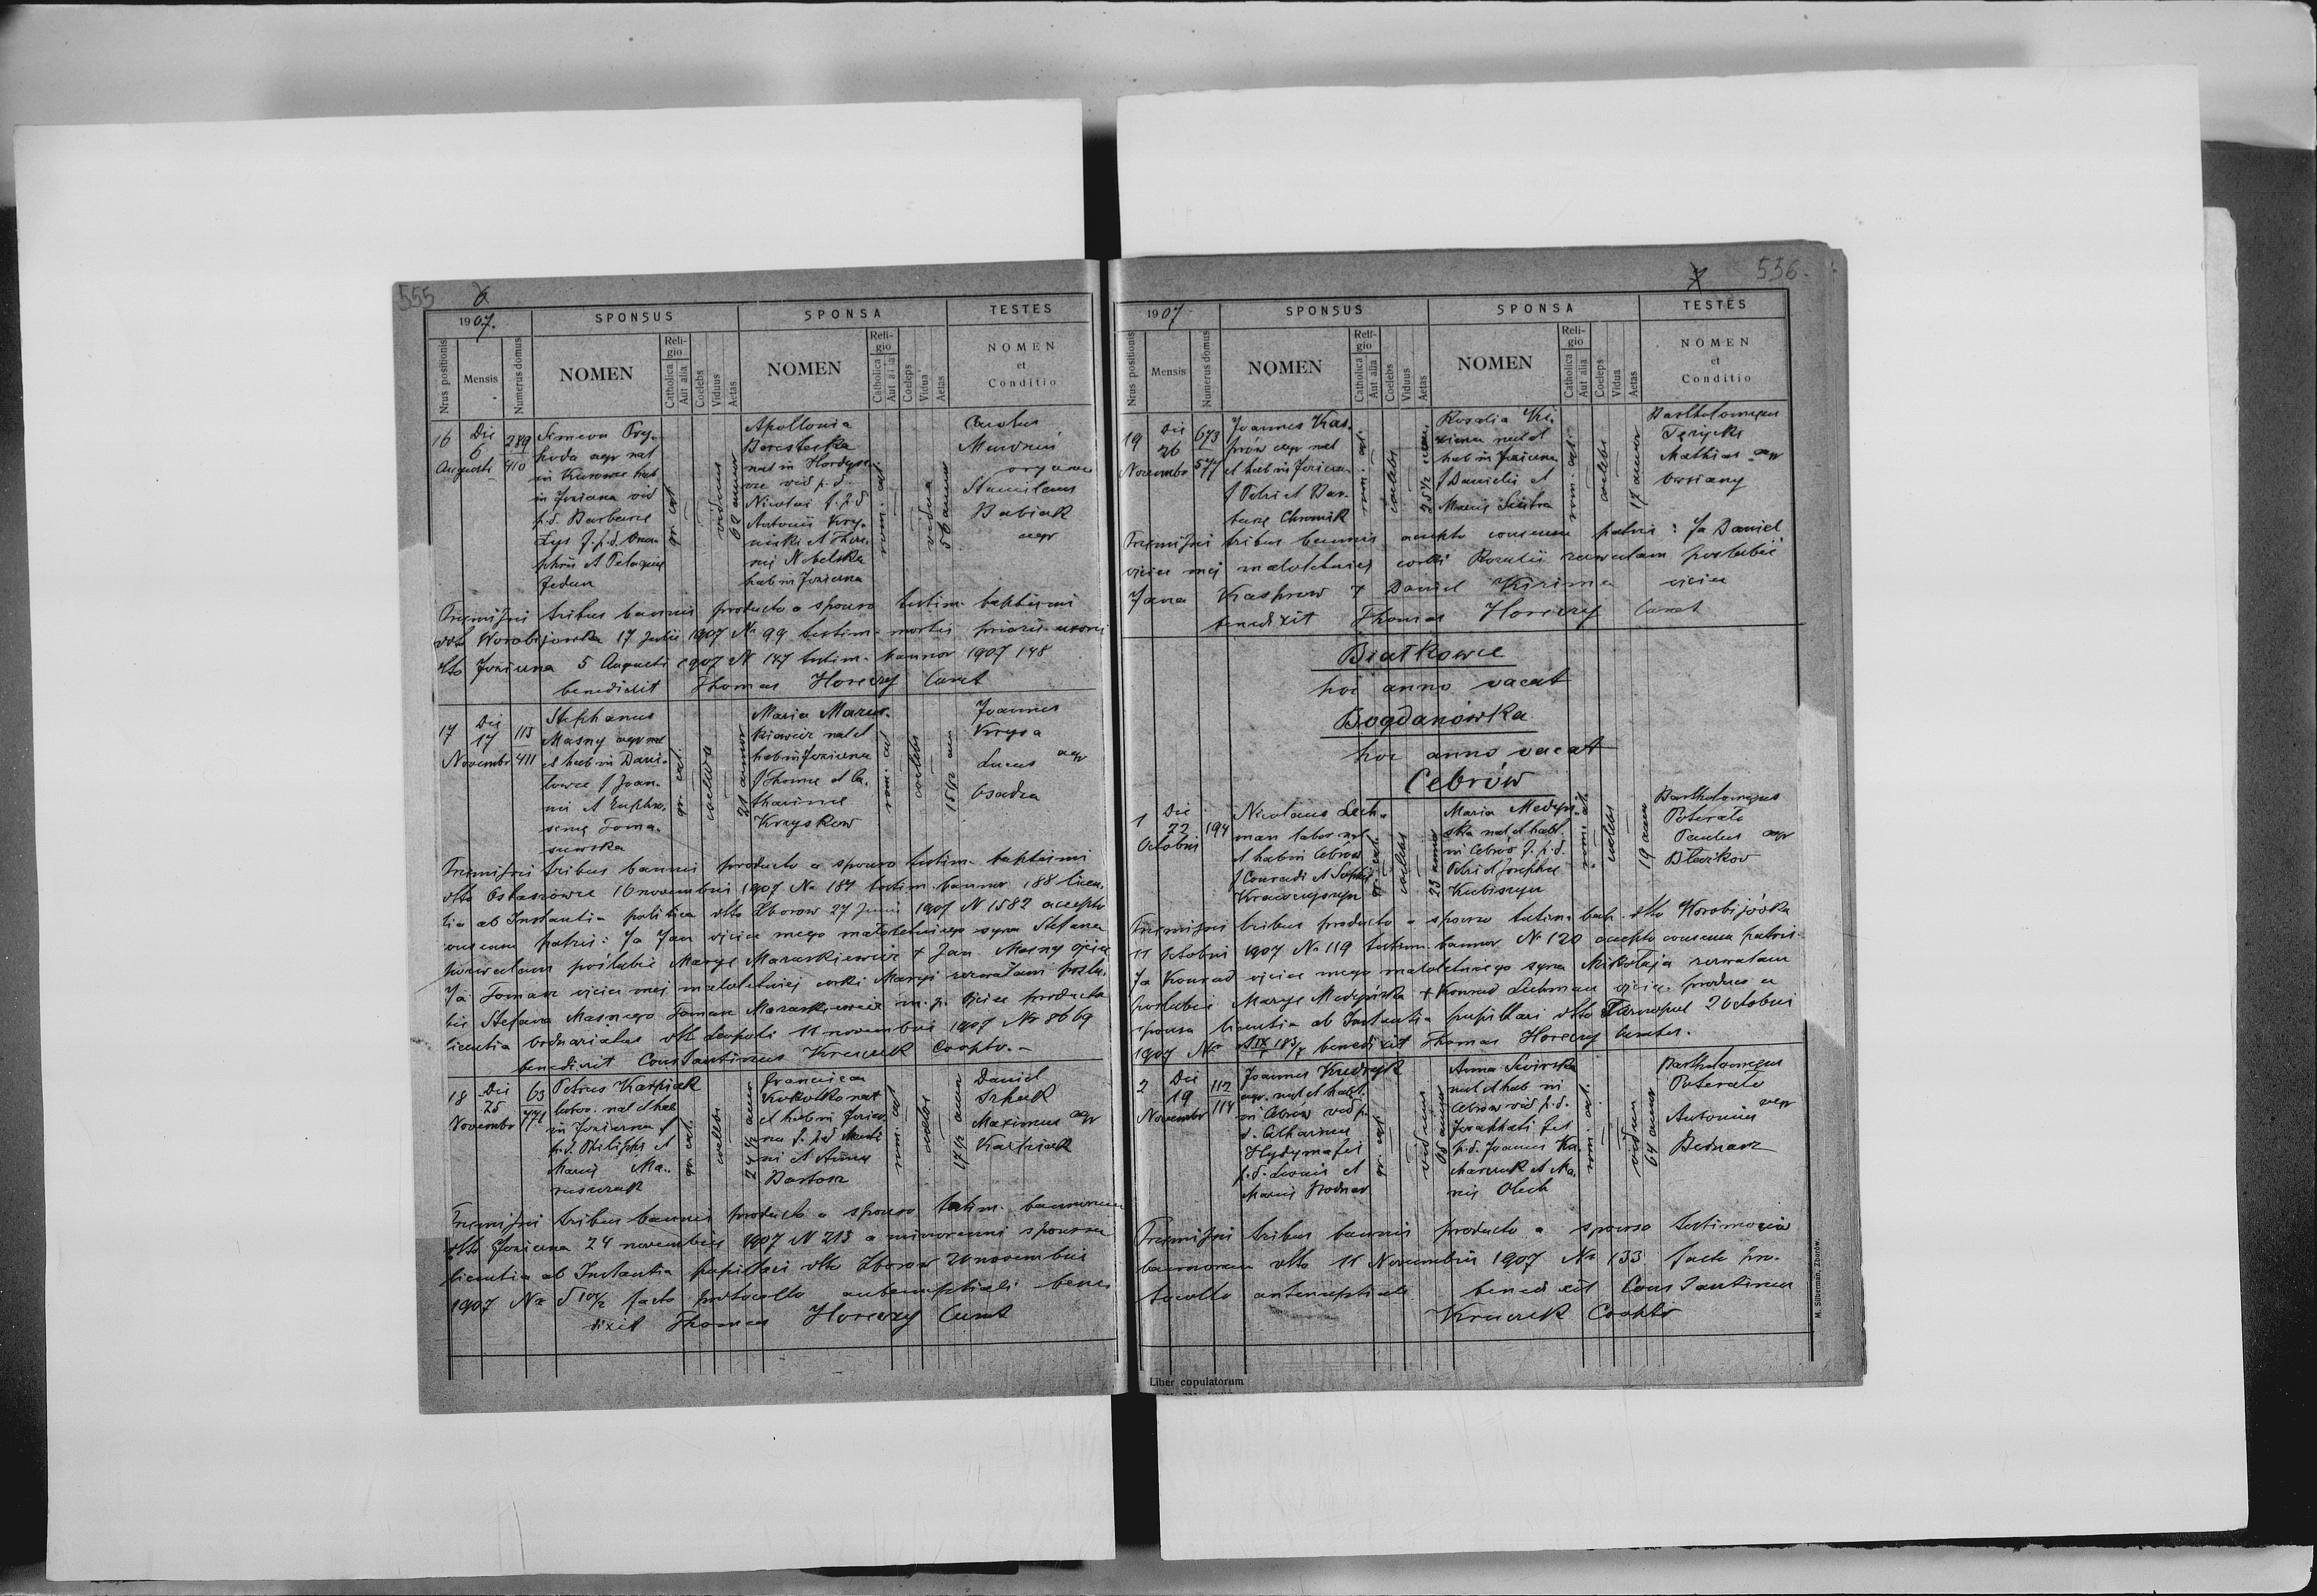 555 6
1907. SPONSUS SPONSA TESTES
Nrus positionis Mensis Numerus domus NOMEN Religio Catholica Aut alia Coelebs Viduus Aetas NOMEN Religio Catholica Aut alia Coeleps Vidua Aetas NOMEN et Conditio
16 Die 6 Augusti 289 410
Simeon Pry-
hoda agr nat
in Kurowce hab
in Jezierna vid
p.d. Barbara
Łys f. p. d. Onu-
phrii et Pelagiae
Fedun
gr. cat
viduus
62 annor
Apollonia
Beresteska
nat in
vid p. d.
Nicolai f. p. d
Antonii
et
Nobelska
hab in Jezierna
rom. cat.
vidua
56 annor
Carolus
organar
Stanislaus
Babiak
agr
Praemissis tribus bannis producto a sponso testim. baptismi
dto Worobijowka 17 Julii 1907 Nr 99 testim. mortis prioris uxoris
dto Jezierna 5 Augusti 1907 N 147 testim. bannor 1907 148
benedixit Thomas Horeczy Curat
17 Die 17 Novembr 113 411
Stephanus
Masny agr nat
et hab in Dani-
lowce f Joan-
nis et Euphro-
sinae Toma-
szewska
gr. cat.
coelebs
21 annor
Maria Marus-
kiewicz nat et
hab in Jezierna
f Thomae et Ca-
tharinae
Krzyskow
rom. cat
coelebs
15 1/2 ann
Joannes
Krysa
agr
Lucas
Osadca
Praemissis tribus bannis producto a sponso testim. baptismi
dto Ostaszowce 16 novembris 1907 No 187 testim. bannor 188 licen-
tia ab Instantia politica dto Zborow 27 Junii 1907 N 1582 accepto
consensu patris: Ja Jan ojciec mego małoletniego syna Stefana
pozwalam poślubić Maryę Maruskiewicz + Jan Masny ojciec
Ja Tomasz ojciec mej małoletniej corki Maryi zezwalam poślu-
bić Stefana Masnego Tomasz Maruskiewicz m. p. ojciec producta
licentia Ordinariatus dto Leopoli 11 novembris 1907 Nr 8669
benedixit Constantinus Kruczek Cooptr.-
18 Die 25 Novembr 63 771
Petrus Karpiak
labor. nat et hab
in Jezierna f
p. d. Philippi et
Mariae Ma-
ruszczak
gr. cat.
coelebs
24 1/2 ann
Francisca
Kokotko nat
et hab in Jezier-
na f. p. d Marti
ni et Annae
Bartosz
rom. cat
coelebs
17 1/2 annor
Daniel
agr
Maximus
Karpiak
Praemissis tribus bannis producto a sponso testim. bannorum
dto Jezierna 24 novembris 1907 N 213 a minorenni sponsa
licentia ab Instantia pupillari dto Zborow 20 novembris
1907 Nr facto protocollo antenuptiali bene
dixit Thomas Horeczy Curat
7 556.
1907 SPONSUS SPONSA TESTES
Nrus positionis Mensis Numerus domus NOMEN Religio Catholica Aut alia Coelebs Viduus Aetas NOMEN Religio Catholica Aut alia Coeleps Vidua Aetas NOMEN et Conditio
19 Die 26 Novembr 673 577
Joannes Kas-
prów agr nat
et hab in Jezierna
f Petri et Bar-
barae Chromik
rom. cat.
coelebs
25 1/2 ann
Rosalia Ki-
rizma nat et
hab in Jezierna
f Danielis et
Mariae
rom. cat.
coelebs
17 annor
Bartholomaeus
Mathias agr
Praemissis tribus bannis accepto consensu patris: Ja Daniel
ojciec mej małoletniej corki Rozalii zezwalam poślubić
Jana Kasprow + Daniel Kirizma ojciec
benedixit Thomas Horeczy Curat
Białkowce
hoc anno vacat
Bogdanówka
hoc anno vacat
Cebrów
1 Die 22 Octobris 194
Nicolaus Lech-
man labor nat
et hab in Cebrów
f Conradi et Sophiae
Krawczyszyn
gr. cat.
coelebs
23 annor
Maria Medyń-
ska nat et hab.
in Cebrów f. p. d.
Petri et Josephae
Kubiszyn
rom. cat.
coelebs
19 ann
Bartholomaeus
Poterało
Paulus agr
Praemissis tribus producto a sponso testim. bap. dto Worobijówka
11 Octobris 1907 No 119 testim. bannor No 120 accepto consensu patris-
Ja Konrad ojciec mego małoletniego syna Mikołaja zezwalam
poślubić Maryę Medyńską + Konrad Lechman ojciec. producta a
sponsa licentia ab Instantia pupillari dto Tarnopol 2 Octobris
1907 No benedixit Thomas Horeczy Curatus.
2 Die 19 Novembr 112 114
Joannes
agr. nat et hab.
in Cebrów vid p.
d. Catharinae
fil
p. d. Lucae et
Mariae Bodnar
gr. cat
viduus
65 annor
Anna Swirska
nat et hab in
Cebrów vid p. d.
fil
p. d. Joannis Ka-
et Ma-
riae Olech
rom. cat.
vidua
64 annor
Bartholomaeus
Poterało
agr
Antonius
Bednarz
Praemissis tribus bannis producto a sponso testimonio
bannorum dto 11 Novembris 1907 No 133 facto pro-
tocollo antenuptiali benedixit Constantinus
Kruczek Cooptr
Liber copulatorum
M. Silberman, Zborów.